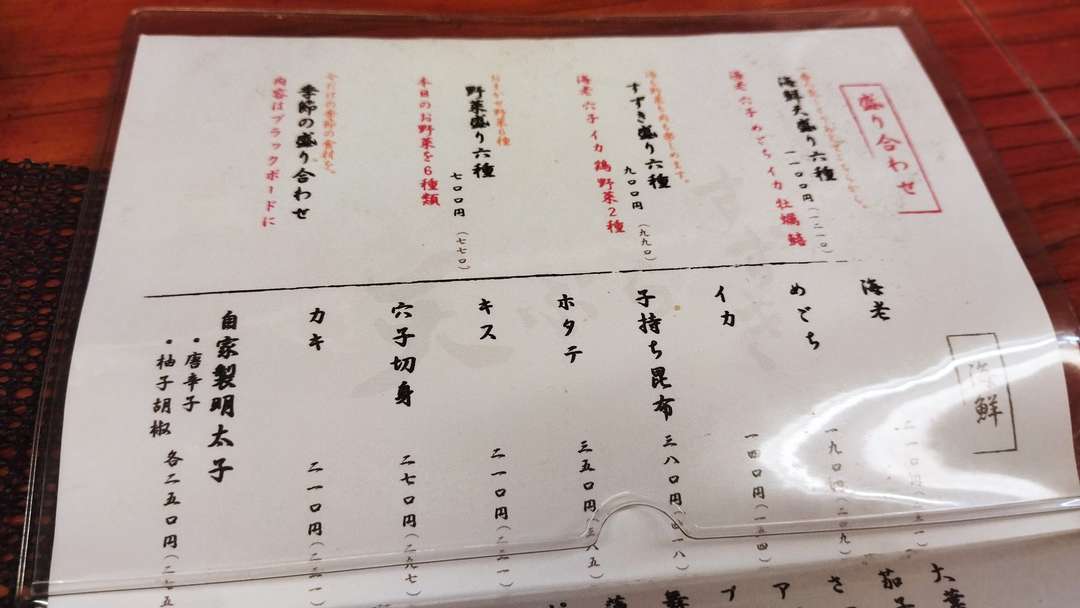 盛り合わせ
海鮮天盛り六種
一一〇〇円(一二一〇)
海老 穴子 めごち イカ 牡蠣 鱚
海も野菜も肉も楽しめます。
すずき盛り六種
九〇〇円(九九〇)
海老 穴子 イカ 鶏 野菜2種
おまかせ野菜6種
野菜盛り六種
七〇〇円(七七〇)
本日のお野菜を6種類
今だけの季節の食材を。
季節の盛り合わせ
内容はブラックボードに
海鮮
海老
二一〇円(二三一)
めごち
一九〇円(二〇九)
イカ
一四〇円(一五四)
子持ち昆布
三八〇円(四一八)
ホタテ
三五〇円(三八五)
キス
二一〇円(二三一)
穴子切身
二七〇円(二九七)
カキ
二一〇円(二三一)
自家製明太子
・唐辛子
・柚子胡椒
各二五〇円(二七五
大葉
茄子
さ
ア
ブ
舞